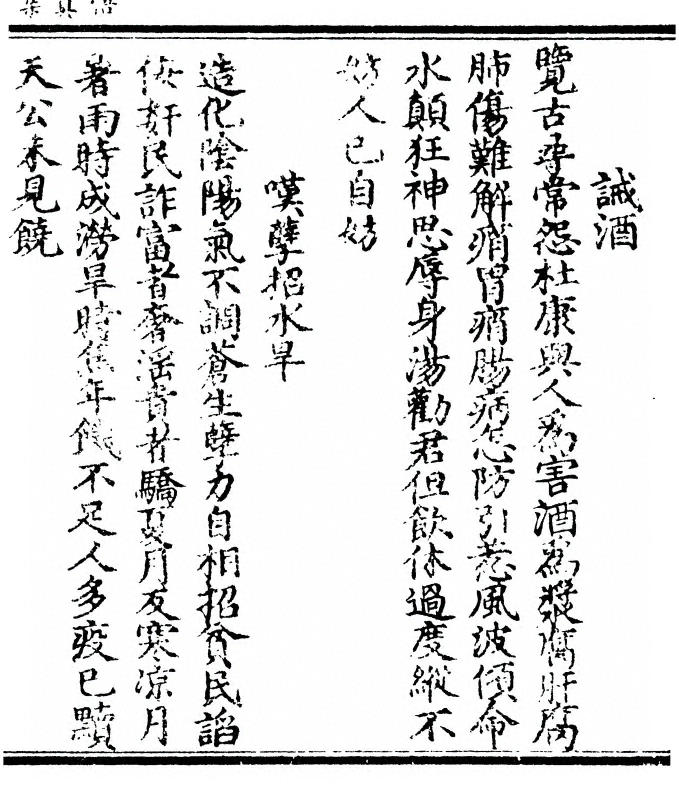 誡酒
覽古尋常怨杜康與人爲害酒爲漿腐肝腐
肺傷難解痟胃痟腸病怎防引惹風波傾命
水顛狂神思辱身湯勸君但飲休過度縱不
妨人已自妨
嘆孽招水旱
造化陰陽氣不調蒼生孽力自相招貧民謟
奸民詐富者奢淫貴者驕夏月反寒凉月
暑雨時成澇旱時焦年饑不足人多疫已黷
天公未見饒